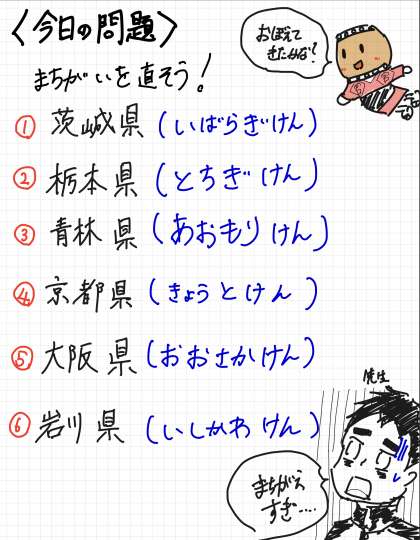 〈今日の問題〉
おぼえて
きたかな？
まちがいを直そう！
① 茨城県（いばらぎけん）
② 栃本県（とちぎけん）
③ 青林県（あおもりけん）
④ 京都県（きょうとけん）
⑤ 大阪県（おおさかけん）
⑥ 岩川県（いしかわけん）
先生
まちがえ
すぎ‥‥